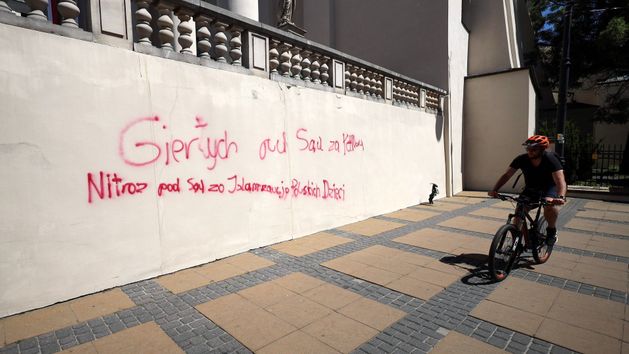 Giertych pod Sąd za
Nitraz pod Sąd za Islamizację Polskich Dzieci